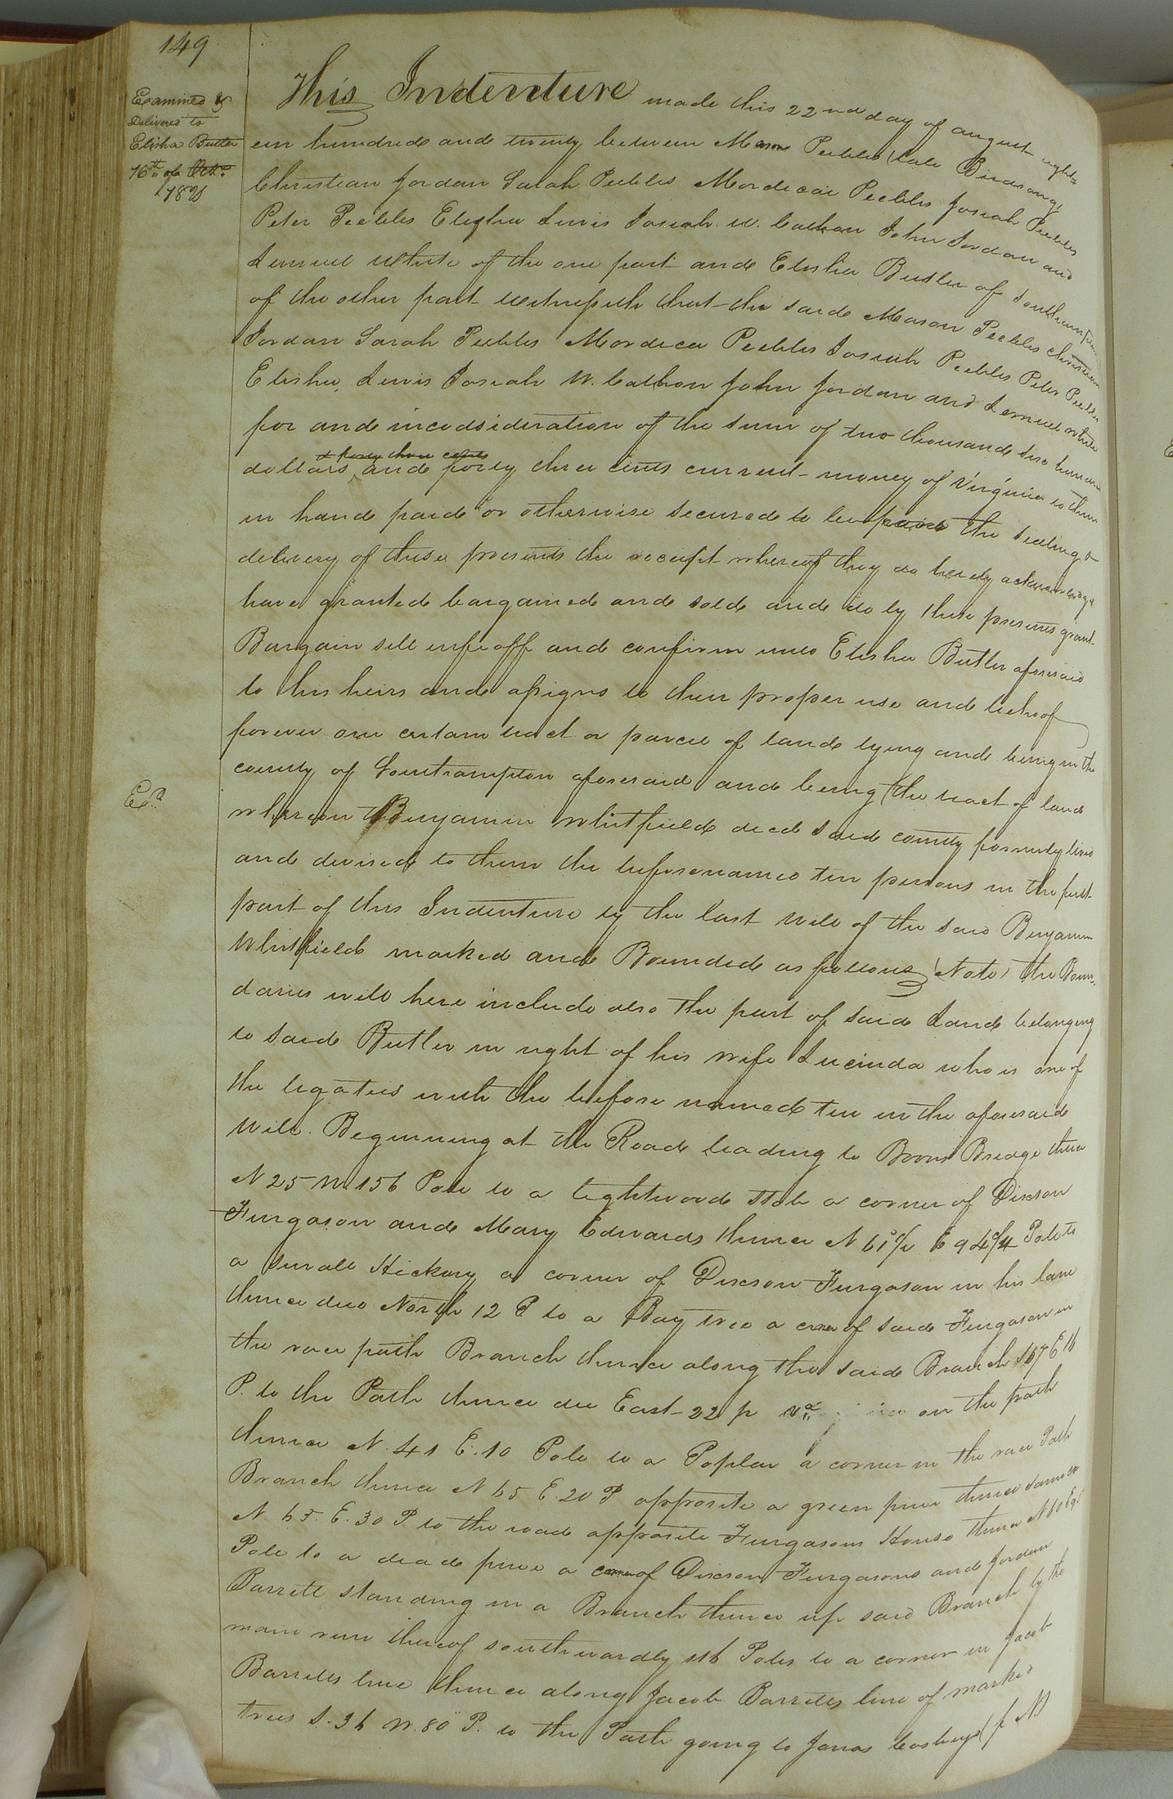 149
Examined &
Delivered to
Elisha Butler
16th of Octr.
1828
This Indenture made this 22nd day of august eight
een hundred and twenty between Mason Peebles late Birdsong
Christian Jordan Sarah Peebles Mordecai Peebles Josiah Peebles
Peter Peebles Elisha Lewis Josiah W. Cathon John Jordan and
Lemuel White of the one part and Elisha Butler of Southampton
of the other part witnesseth that the said Mason Peebles Christian
Jordan Sarah Peebles Mordica Peebles Josiah Peebles Peter Peebles
Elisha Lewis Josiah W. Cathon John Jordan and Lemuel White
for and inconsideration of the sum of two thousand
& forty three cents
dollars and forty three cents current money of Virginia to them
in hand paid or otherwise secured to be paid the sealing &
delivery of these presents the receipt whereof they do hereby acknowledge
have granted bargained and sold and do by these presents grant
Bargain sell infeoff and confirm unto Elisha Butler aforesaid
to his heirs and assigns to their proper use and behoof
forever one certain tract or parcel of land lying and being in the
county of Southampton aforesaid and being the tract of land
whereon Benjamin Whitfield decd said county formerly lived
E.B.
and devised to them the beforenamed ten persons in the first
part of this Indenture by the last will of the said Benjamin
Whitfield marked and Bounded as follows (Note) the Boun-
daries will here include also the part of said Land belonging
to said Butler in right of his wife Lucinda who is one of
the legatees with the before named ten in the aforesaid
Will. Beginning at the Road leading to Boons Bridge thence
N 25 W 156 Pole to a lightwood Stob a corner of Dixson
Furgason and Mary Edwards thence N 61 1/2 E 94 3/4 Pole to
a Small Hickory a corner of Dixson Furgason in his lane
thence due North 12 P to a Bay tree a corner of said Furgason in
the race path Branch thence along the said Branch S 67 E 16
P. to the Path thence due East 22 p on the path
thence N. 41 E. 10 Pole to a Poplar a corner in the race Path
Branch thence N 65 E. 20 P opposite a green pine thence same
N. 65 E. 30 P. to the road opposite Furgasons House thence N 80 E
Pole to a dead pine a corner of Dixson Furgasons and Jordan
Barrett standing in a Branch thence up said Branch by the
main run thereof southwardly 116 Poles to a corner in Jacob
Barretts line thence along Jacob Barretts line of marked
trees S. 36 W. 80 P. to the Path going to Jonas